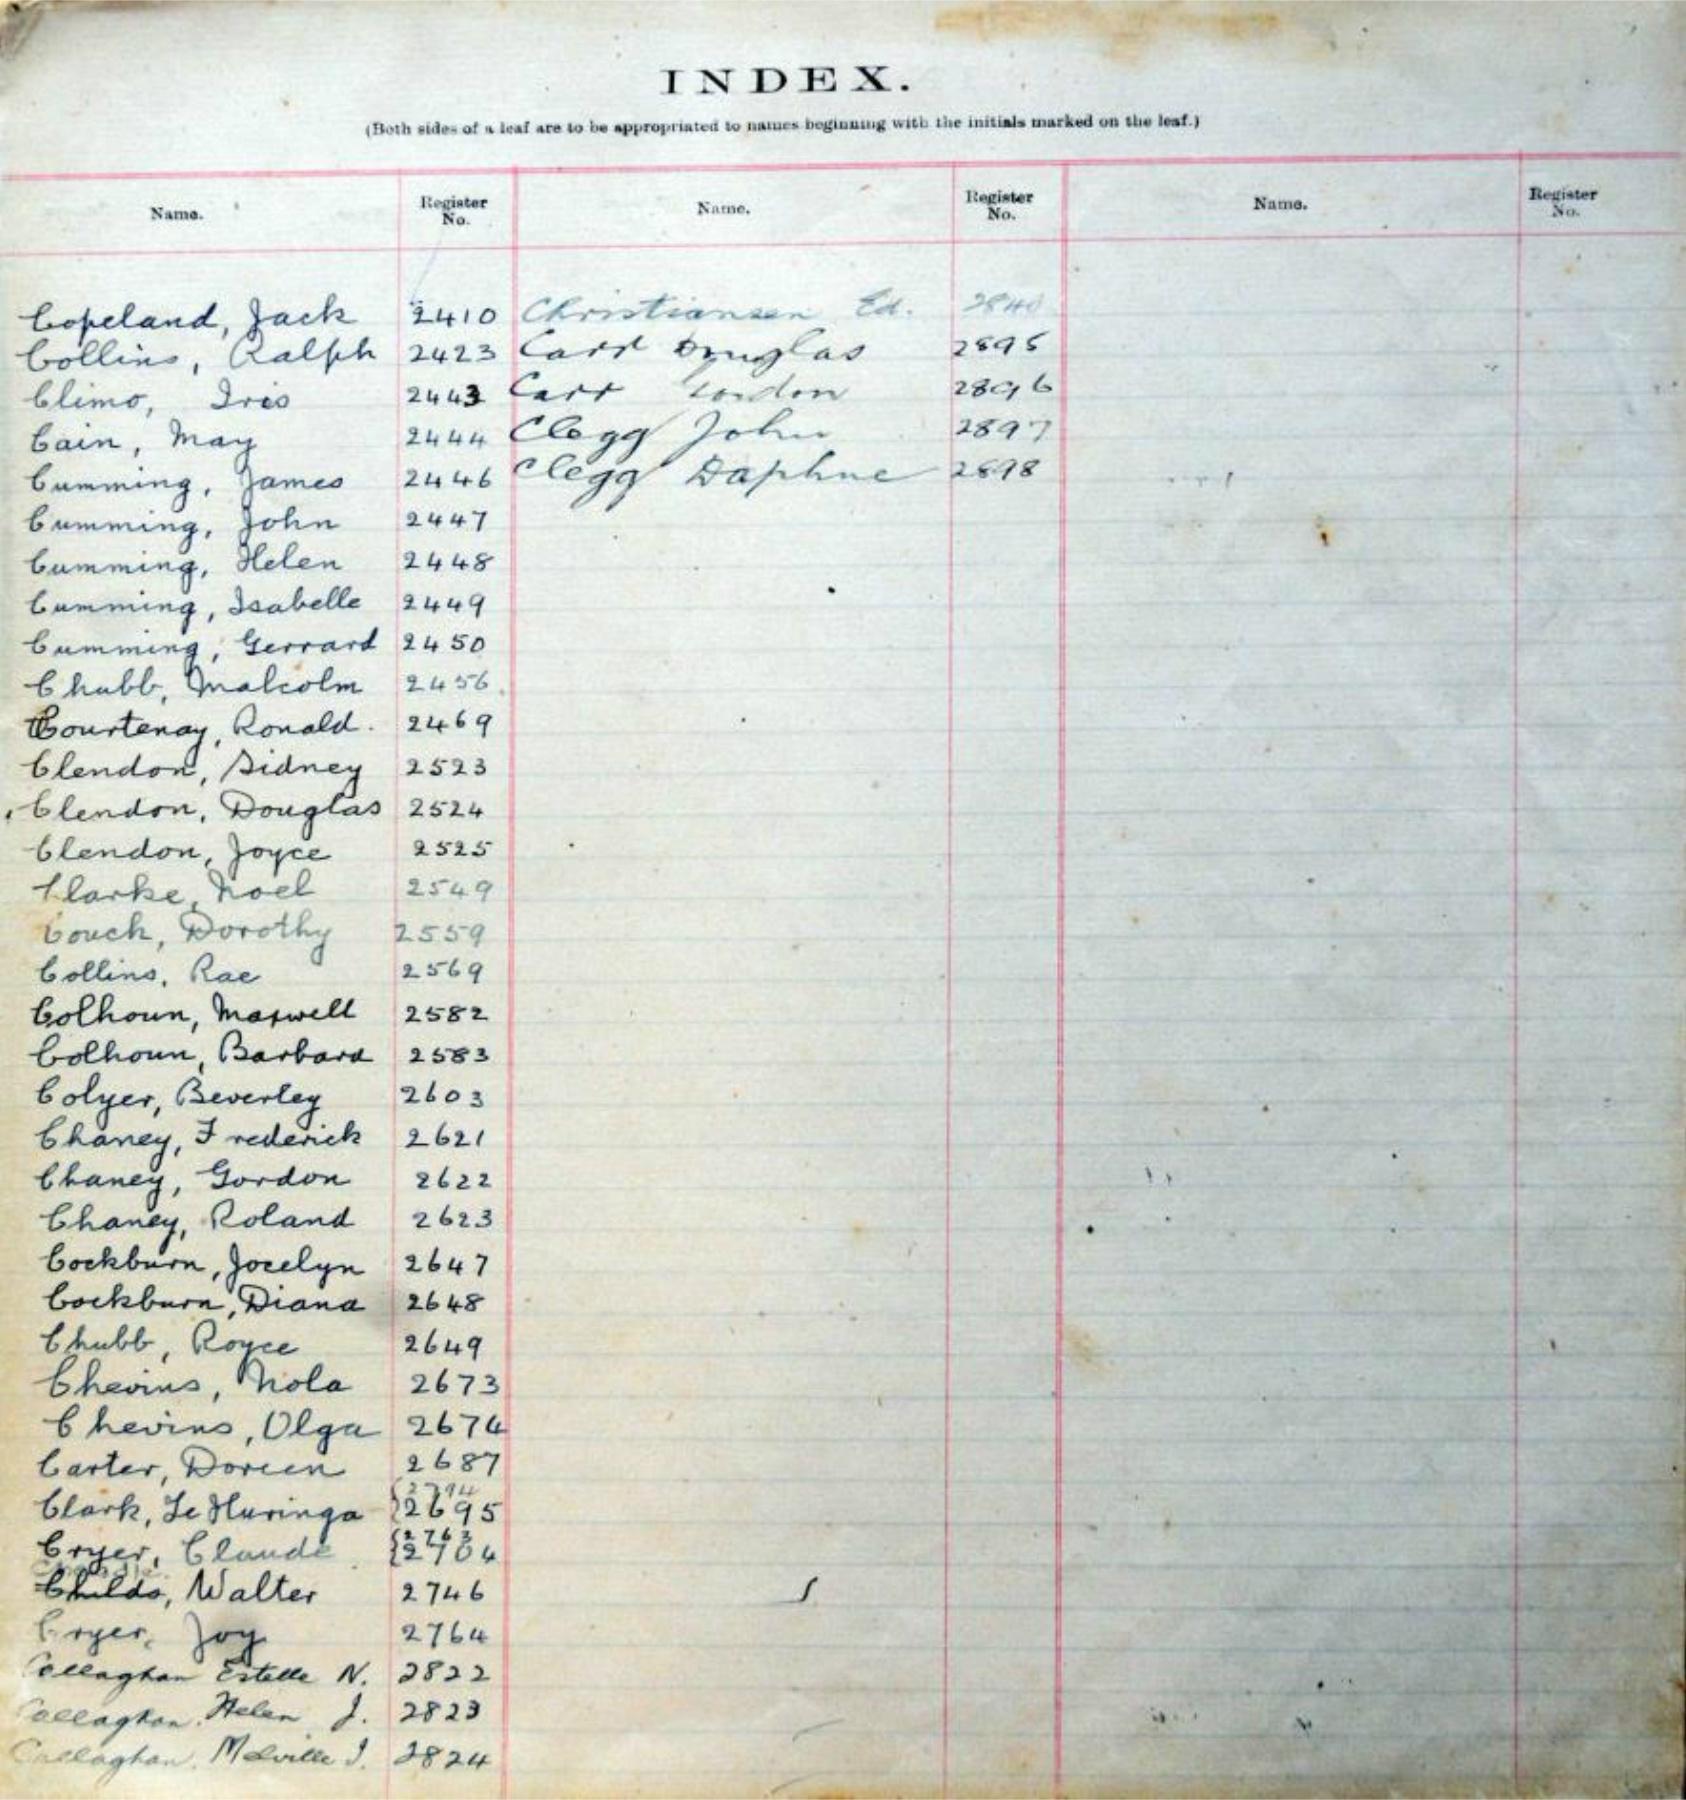 INDEX.
(Both sides of a leaf are to be appropriated to names beginning with the initials marked on the leaf.)
Name. Register No. Name. Register No. Name. Register No.
Copeland, Jack 2410 Christiansen Ed. 2840
Collins, Ralph 2423 Carr Douglas 2895
Climo, Iris 2443 Carr 2896
Cain, May 2444 Clegg John 2897
Cumming, James 2446 Clegg Daphne 2898
Cumming, John 2447
Cumming, Helen 2448
Cumming, Isabelle 2449
Cumming, Gerrard 2450
Chubb, Malcolm 2456
Courtenay, Ronald. 2469
Clendon, Sidney 2523
Clendon, Douglas 2524
Clendon, Joyce 2525
Clarke, Noel 2549
Couch, Dorothy 2559
Collins, Rae 2569
Colhoun, Maxwell 2582
Colhoun, Barbara 2583
Colyer, Beverley 2603
Chaney, Frederick 2621
Chaney, Gordon 2622
Chaney, Roland 2623
Cockburn, Jocelyn 2647
Cockburn, Diana 2648
Chubb, Royce 2649
Chevins, Nola 2673
Chevins, Olga 2674
Carter, Doreen 2687
2794
Clark, Te Huringa 2695
2763
Cryer, Claude 2704
Childs, Walter 2746
Cryer, Joy 2764
Callaghan Estelle N. 2822
Callaghan. Helen J. 2823
Callaghan. Melville J. 2824